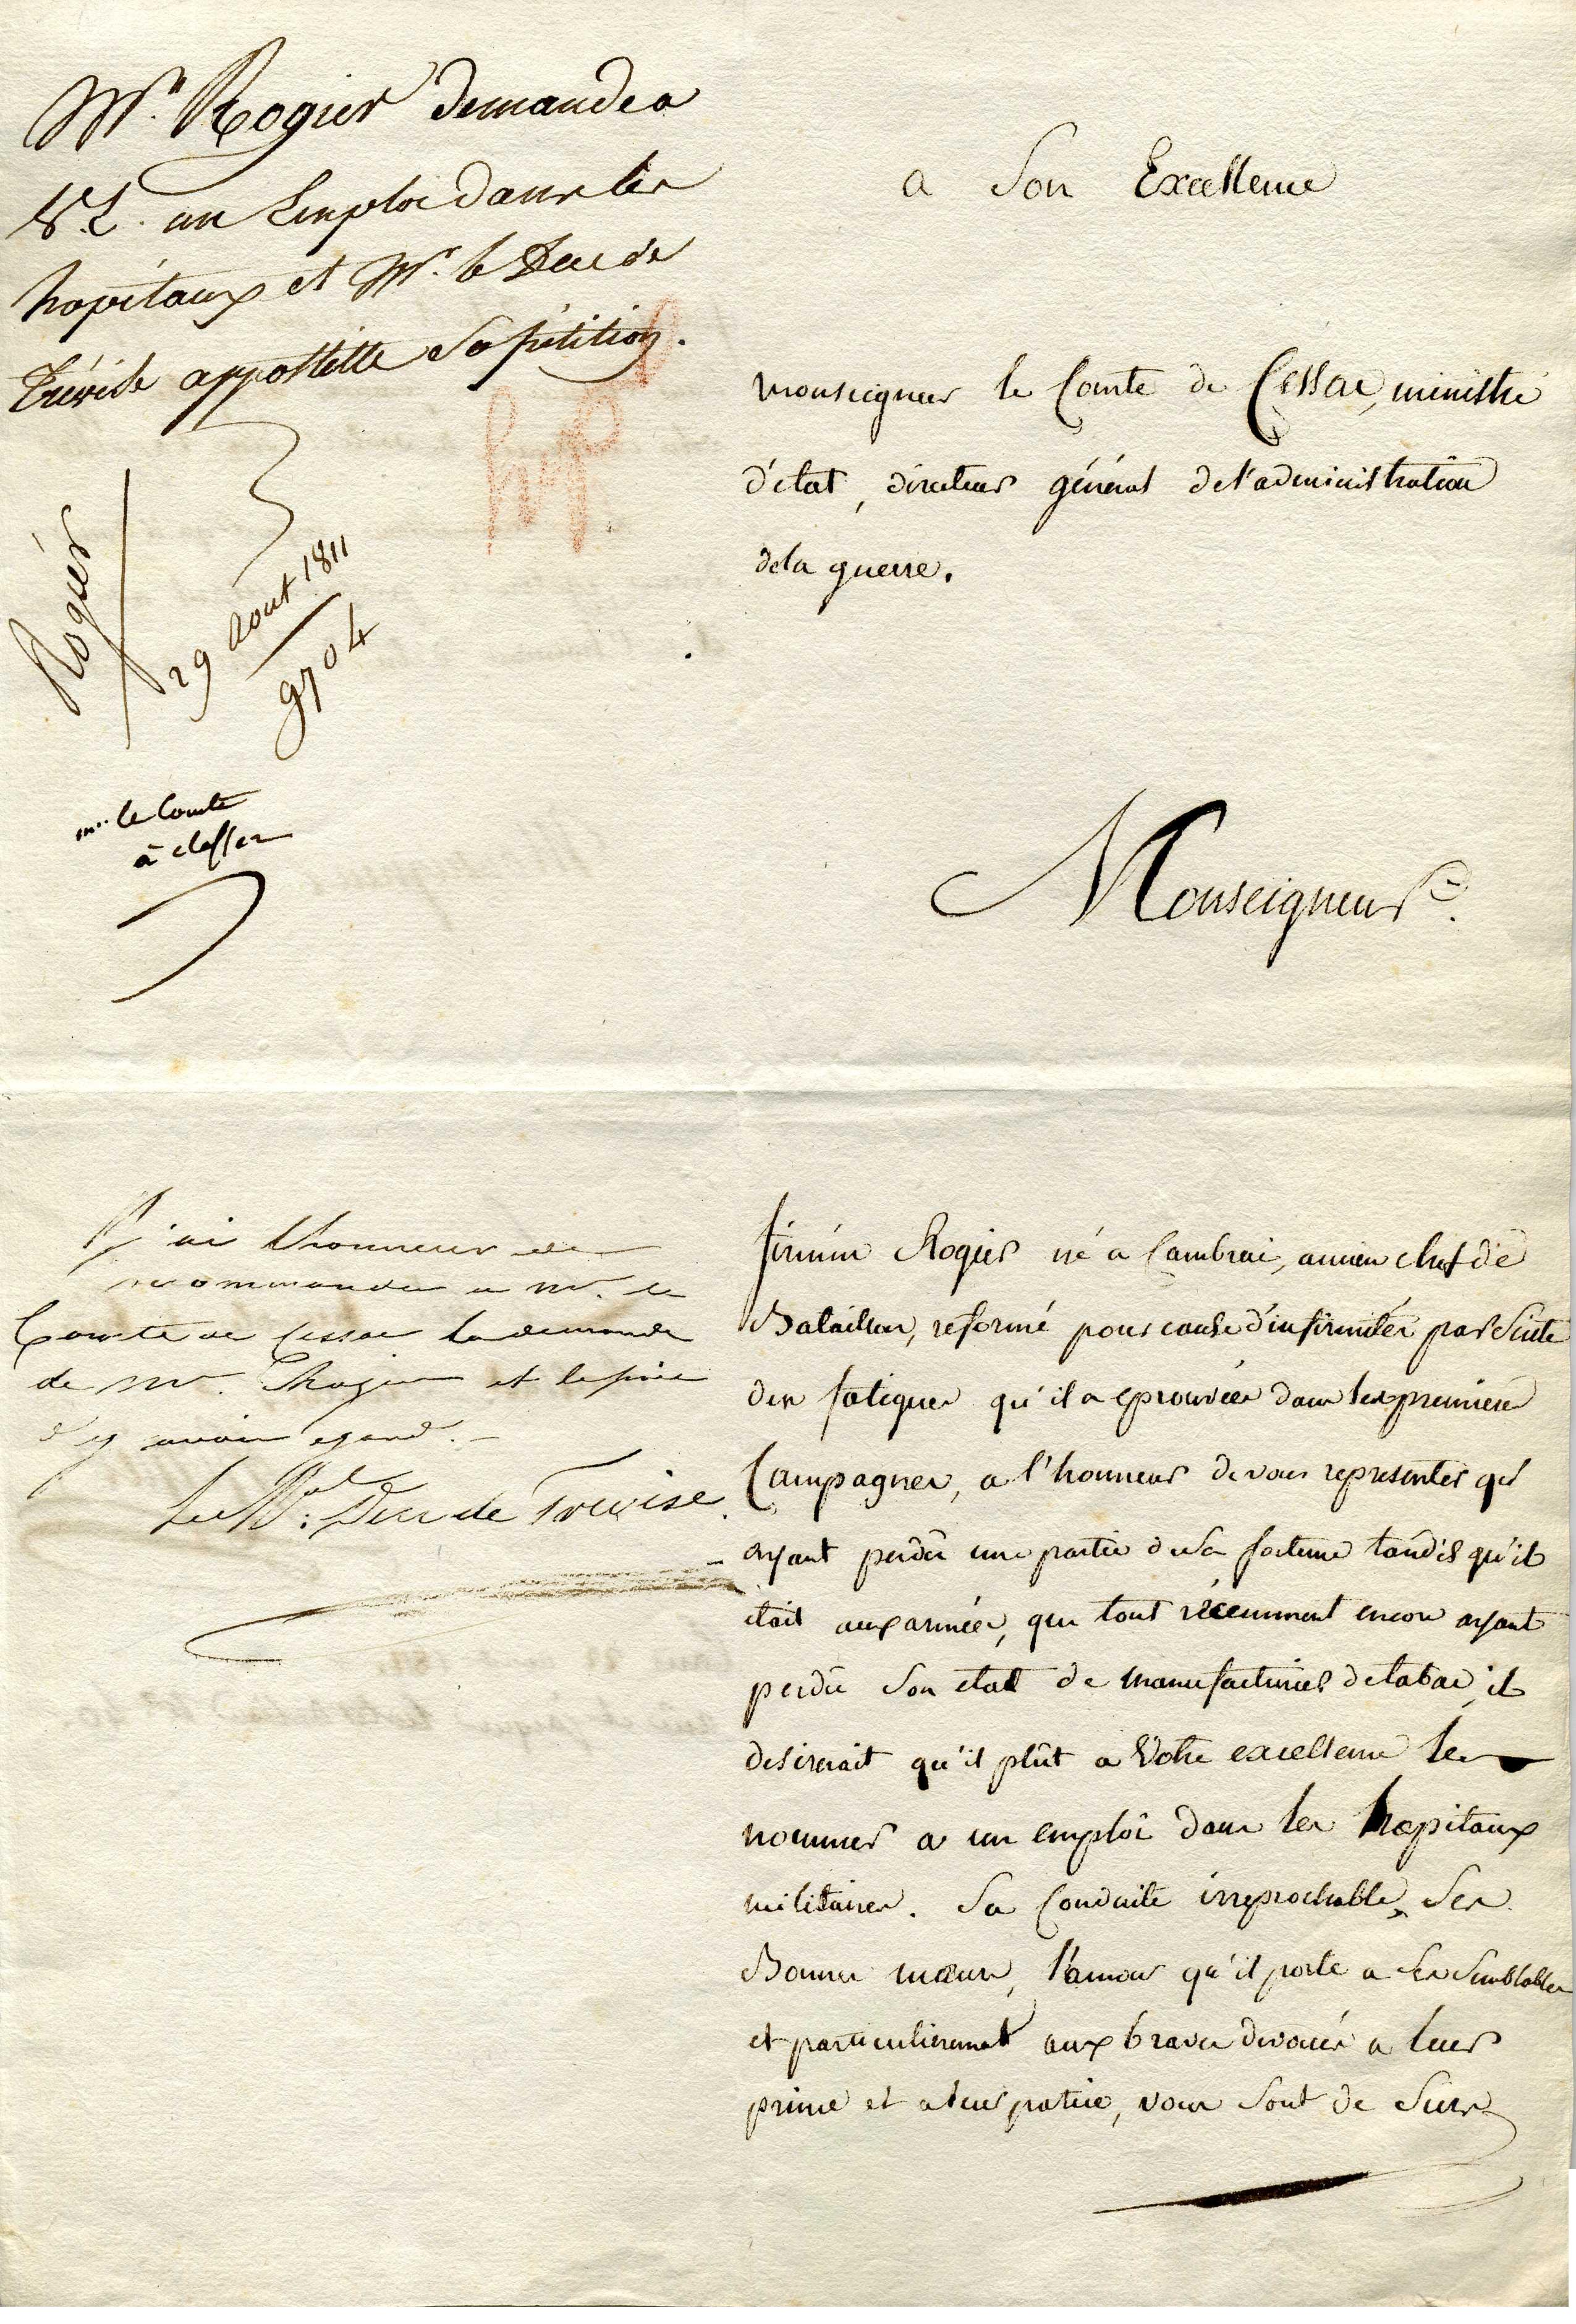 Mr. Rogier demande a
S.E. un Emploi dans les
hopitaux et Mr. le Duc de
Trévise appostille sa pétition.
hop
Rogier
29 Aout 1811
9704
mr. le Comte
à classer
J'ai l'honneur de
recommander a Mr. le
Comte de Cessac la demande
de Mr. Rogier et le prie
d'y avoir egard. -
Le Mal. Duc de Trevise
a Son Excellence
Monseigneur le Comte de Cessac, ministre
d'état, directeur général de l'administration
de la guerre.
Monseigneur.
firmin Rogier né a Cambrai, ancien chef de
Bataillon, reformé pour cause d'infirmités par suite
des fatigues qu'il a eprouvées dans les premieres
Campagnes, a l'honneur de vous representer qu'
ayant perdu une partie de sa fortune tandis qu'il
était aux armées, que tout récemment encore ayant
perdu son etat de manufacturier de tabac, il
desirerait qu'il plût a Votre excellence le
nommer a un emploi dans les hopitaux
militaires. Sa Conduite irreprochable, ses
Bonnes mœurs, l'amour qu'il porte a ses semblables
et particulierement aux braves devoués a leur
prince et a leur patrie, vous sont de surs